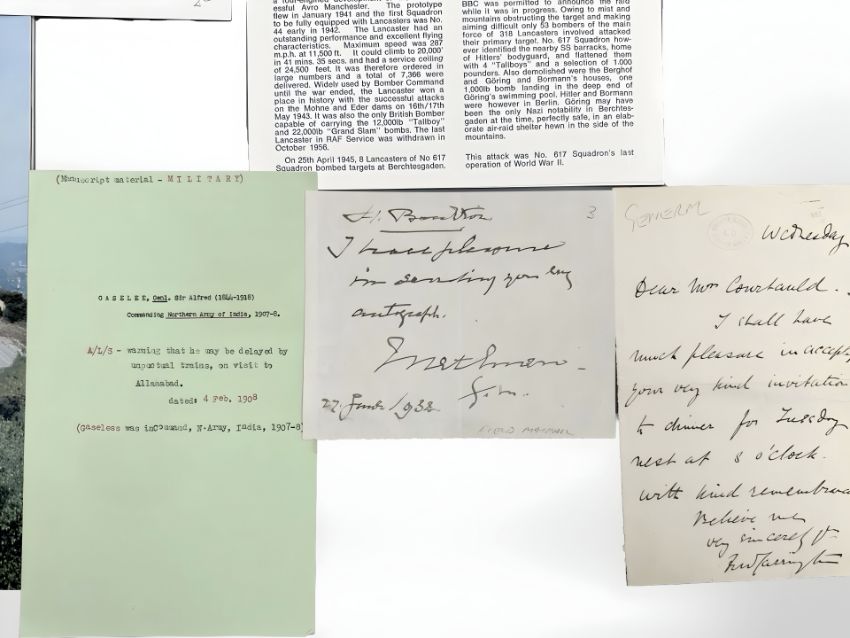 essful Avro Manchester. The prototype
flew in January 1941 and the first Squadron
to be fully equipped with Lancasters was No.
44 early in 1942. The Lancaster had an
outstanding performance and excellent flying
characteristics. Maximum speed was 287
m.p.h. at 11,500 ft. It could climb to 20,000'
in 41 mins. 35 secs. and had a service ceiling
of 24,500 feet. It was therefore ordered in
large numbers and a total of 7,366 were
delivered. Widely used by Bomber Command
until the war ended, the Lancaster won a
place in history with the successful attacks
on the Mohne and Eder dams on 16th/17th
May 1943. It was also the only British Bomber
capable of carrying the 12,000lb "Tallboy"
and 22,000lb "Grand Slam" bombs. The last
Lancaster in RAF Service was withdrawn in
October 1956.
On 25th April 1945, 8 Lancasters of No 617
Squadron bombed targets at Berchtesgaden.
BBC was permitted to announce the raid
while it was in progress. Owing to mist and
mountains obstructing the target and making
aiming difficult only 53 bombers of the main
force of 318 Lancasters involved attacked
their primary target. No. 617 Squadron how-
ever identified the nearby SS barracks, home
of Hitlers' bodyguard, and flattened them
with 4 "Tallboys" and a selection of 1,000
pounders. Also demolished were the Berghof
and Göring and Bormann's houses, one
1,000lb bomb landing in the deep end of
Göring's swimming pool. Hitler and Bormann
were however in Berlin. Göring may have
been the only Nazi notability in Berchtes-
gaden at the time, perfectly safe, in an elab-
orate air-raid shelter hewn in the side of the
mountains.
This attack was No. 617 Squadron's last
operation of World War II.
(Manuscript material - MILITARY)
GASELEE, Genl. Sir Alfred (1844-1918)
Commanding Northern Army of India, 1907-8.
A/L/S - warning that he may be delayed by
unpuctual trains, on visit to
Allahabad.
dated: 4 Feb. 1908
(Gaseless was inCommand, N.Army, India, 1907-8)
3
I have pleasure
in sending you my
autograph.
Methuen.
F.M.
FIELD MARSHAL
GENERAL
Wednesday
Dear Mrs Courtauld.
I shall have
much pleasure in accept
your very kind invitation
to dinner for Tuesday
next at 8 o'clock.
with kind remembrance
Believe me
very sincerely